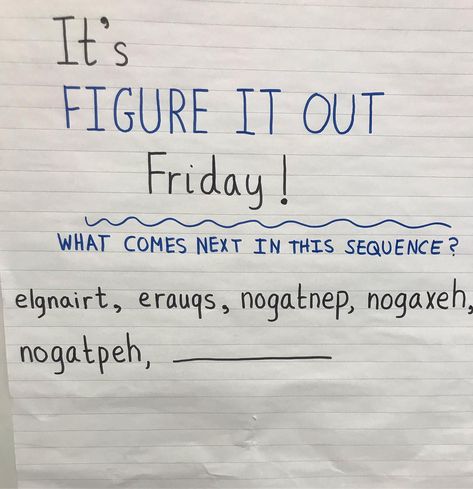 It's
FIGURE IT OUT
Friday!
WHAT COMES NEXT IN THIS SEQUENCE?
elgnairt, erauqs, nogatnep, nogaxeh,
nogatpeh, __________